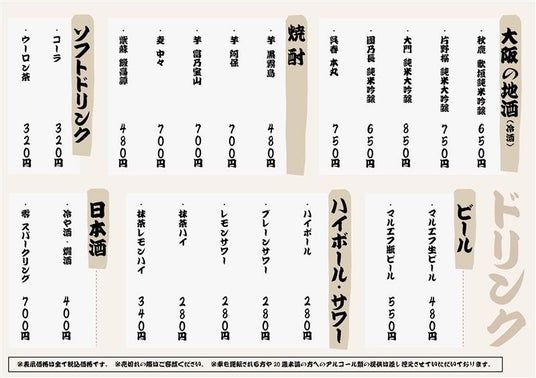 大阪の地酒（冷酒）
・秋鹿 歌垣純米吟醸 650円
・片野桜 純米大吟醸 750円
・大門 純米大吟醸 850円
・國乃長 純米大吟醸 650円
・呉春 本丸 750円
焼酎
・芋 黒霧島 480円
・芋 阿保 700円
・芋 富乃宝山 700円
・麦 中々 700円
・紫蘇 鍛高譚 480円
ソフトドリンク
・コーラ 320円
・ウーロン茶 320円
ドリンク
ビール
・マルエフ生ビール 480円
・マルエフ瓶ビール 550円
ハイボール・サワー
・ハイボール 280円
・プレーンサワー 280円
・レモンサワー 280円
・抹茶ハイ 280円
・抹茶レモンハイ 340円
日本酒
・冷や酒・燗酒 400円
・雫 スパークリング 700円
※表示価格は全て税込価格です。 ※売切れの際はご容赦ください。 ※車を運転される方や20歳未満の方へのアルコール類の提供は差し控えさせていただいております。